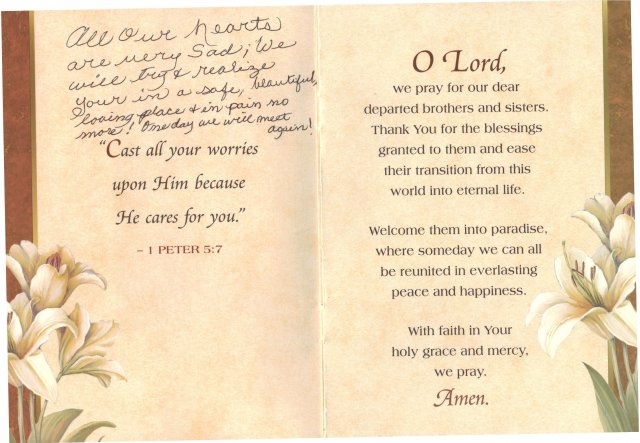 All Our hearts
are very Sad; We
will try & realize
Your in a safe, beautiful,
loving place & in pain no
more! One day we will meet
again!
"Cast all your worries
upon Him because
He cares for you."
– 1 PETER 5:7
O Lord,
we pray for our dear
departed brothers and sisters.
Thank You for the blessings
granted to them and ease
their transition from this
world into eternal life.
Welcome them into paradise,
where someday we can all
be reunited in everlasting
peace and happiness.
With faith in Your
holy grace and mercy,
we pray.
Amen.